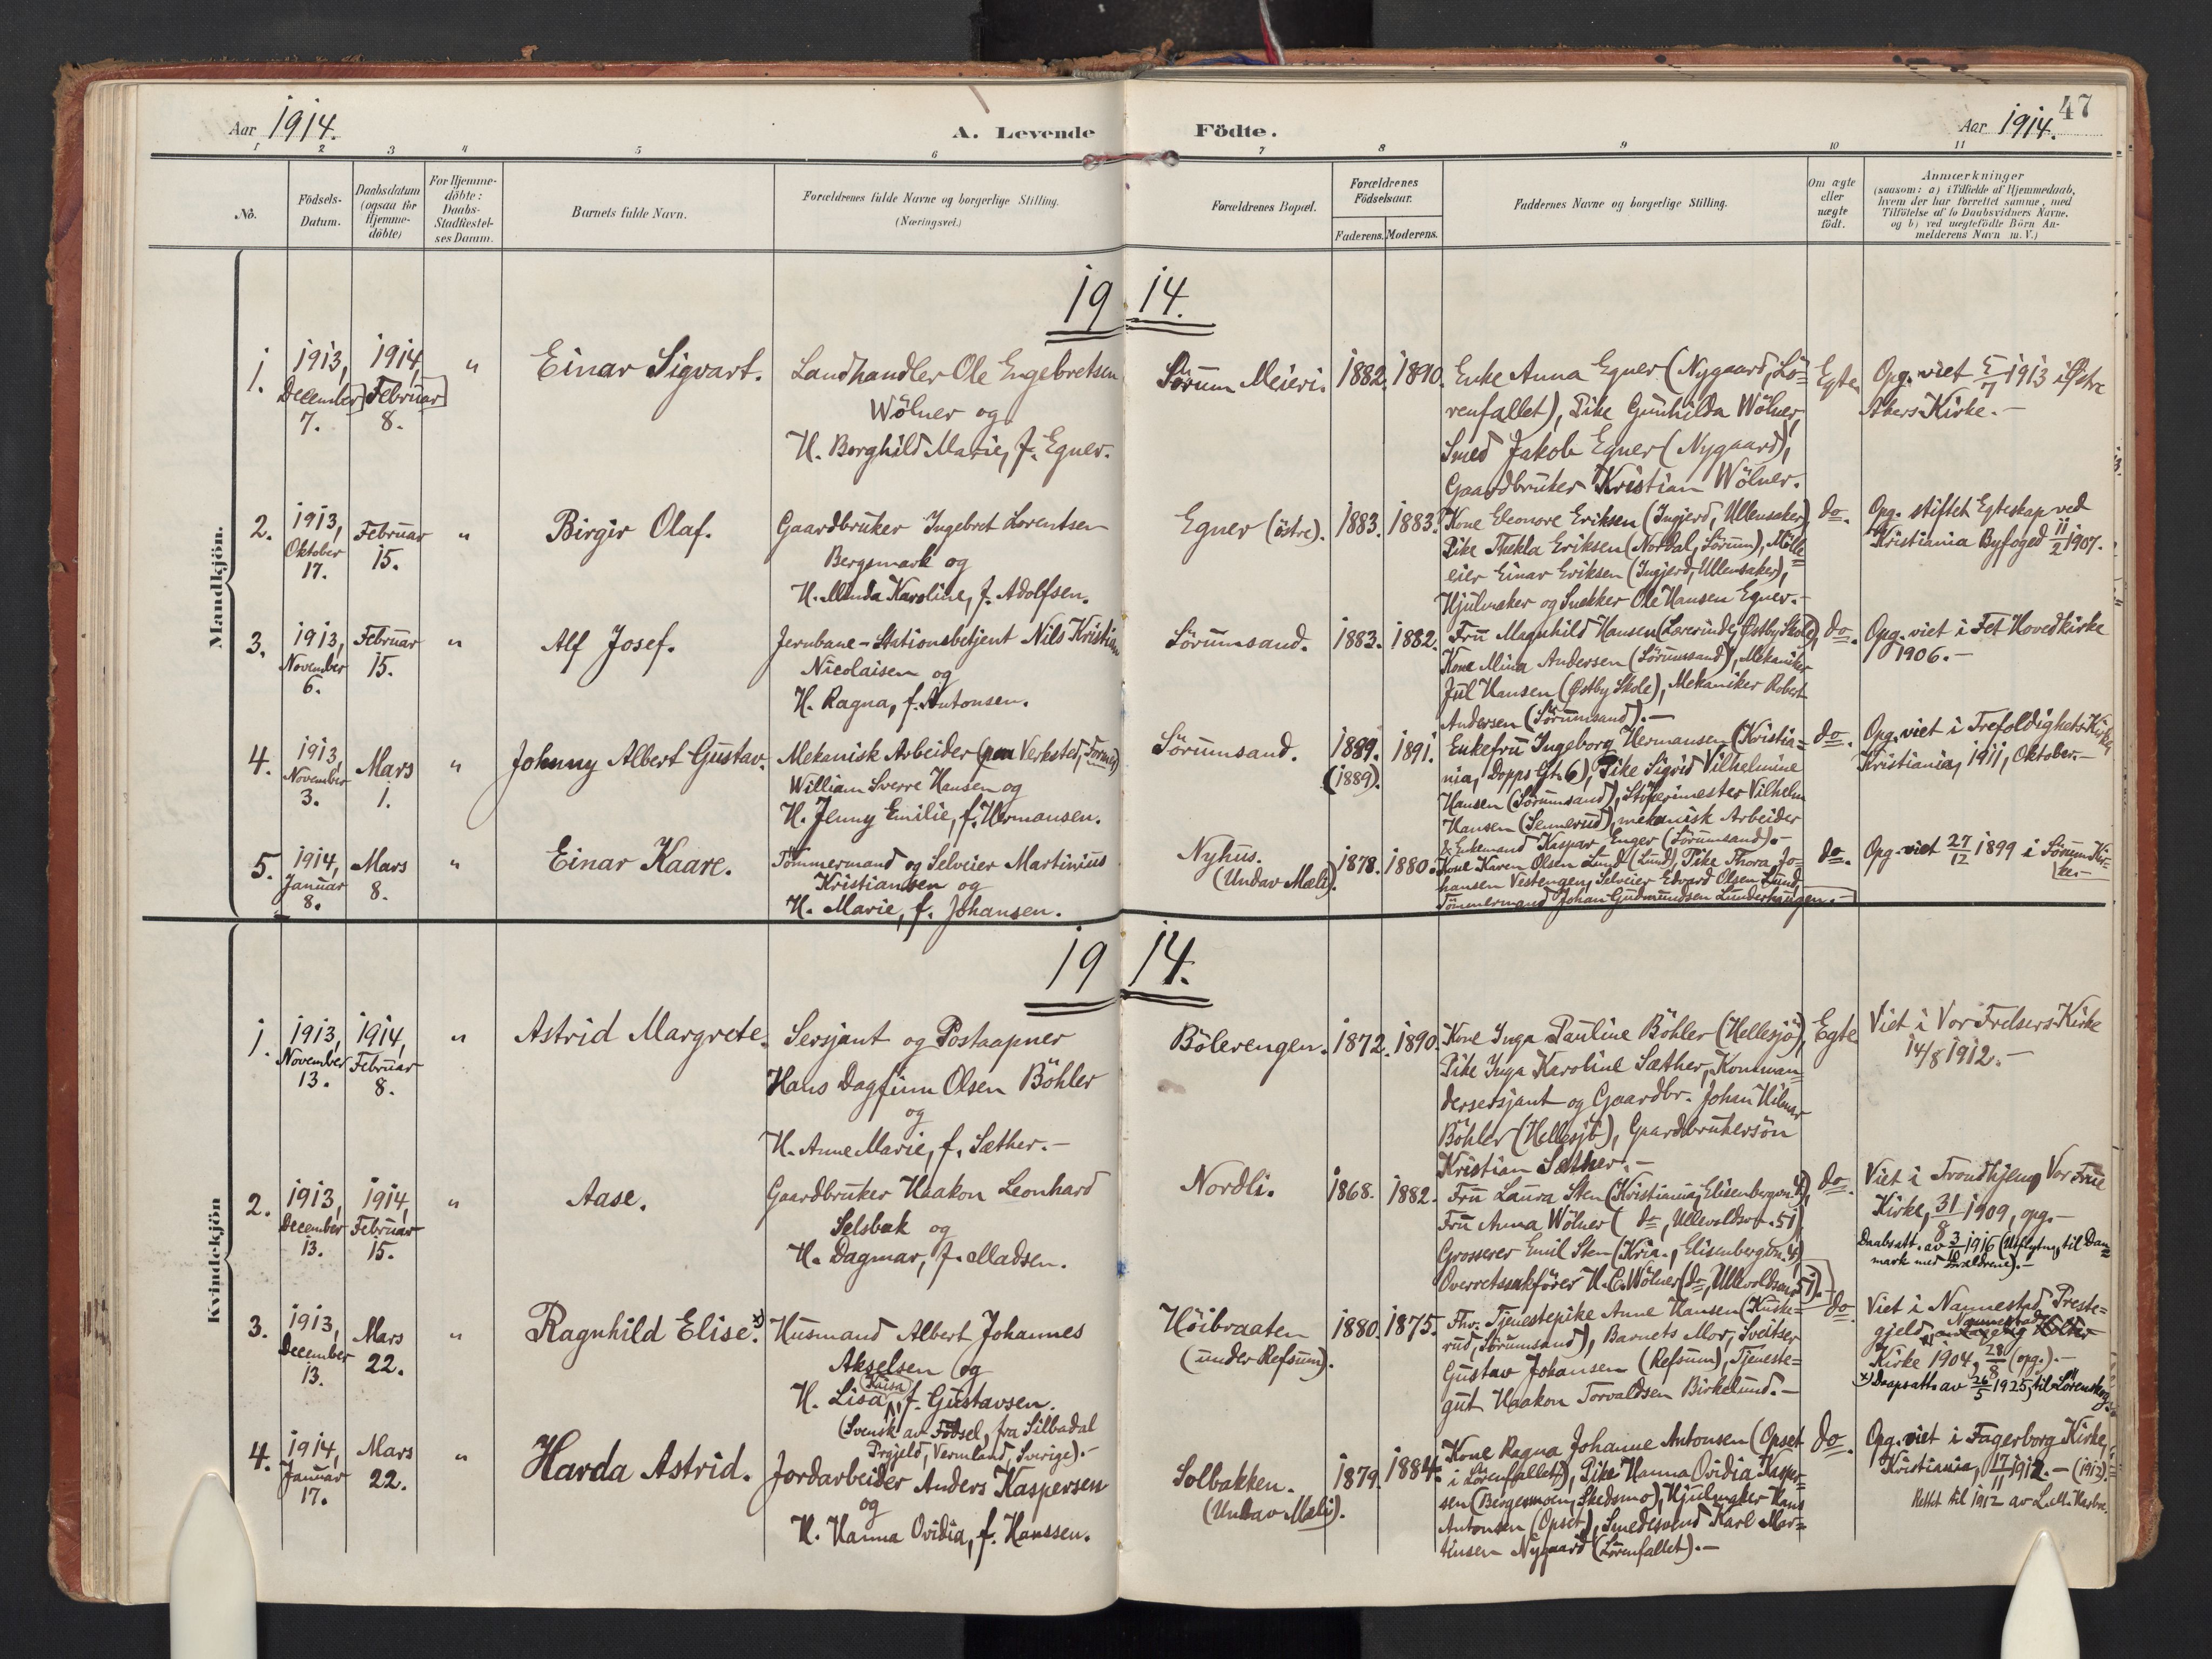 47
Aar 1914.
A. Levende Födte.
Aar 1914.
1 2 3 4 5 6 7 8 9 10 11
No.
Födsels-
Datum.
Daabsdatum
(ogsaa for
Hjemme-
döbte)
For Hjemme-
döbte:
Daabs-
Stadfæstel-
ses Datum.
Barnets fulde Navn.
Forældrenes fulde Navne og borgerlige Stilling.
(Næringsvei.)
Forældrenes Bopæl.
Forældrenes
Födselsaar.
Faderens. Moderens.
Faddernes Navne og borgerlige Stilling.
Om ægte
eller
uægte
födt.
Anmærkninger
(saasom: a) i Tilfælde af Hjemmedaab,
hvem der har forrettet samme, med
Tilföielse af to Daabsvidners Navne.
og b) ved uægtefödte Börn An-
melderens Navn m. V.)
Mandkjön.
19 14.
1.
1913,
December
7.
1914,
Februar
8.
"
Einar Sigvart.
Landhandler Ole Engebretsen
Wölner og
H. Borghild Marie, f. Egner.
Sörum Meieri.
1882. 1890.
Enke Anna Egner (Nygaard, Lö-
renfallet), Pike Gunhilda Wölner,
Smed Jakob Egner (Nygaard),
Gaardbruker Kristian Wölner.
Egte.
Opg. viet 5/7 1913 i Østre
Akers Kirke.-
2.
1913,
Oktober
17.
Februar
15.
"
Birgir Olaf.
Gaardbruker Ingebret Lorentsen
Bergsmark og
H. Minda Karoline, f. Adolfsen.
Egner (östre).
1883. 1883.
Kone Eleonore Eriksen (Ingjerd, Ullensaker),
Pike Thekla Eriksen (Nordal, Sörum), Mölle
eier Einar Eriksen (Ingjerd, Ullensaker),
Hjulmaker og Snekker Ole Hansen Egner.-
do.
Opg. stiftet Egteskap ved
Kristiania Byfoged 11/2 1907.
3.
1913,
November
6.
Februar
15.
"
Alf Josef.
Jernbane-Stationsbetjent Nils Kristian
Nicolaisen og
H. Ragna, f. Antonsen.
Sörumsand.
1883. 1882.
Fru Magnhild Hansen (Lærerinde, Østby Skole),
Kone Mina Andersen (Sörumsand), Mekaniker
Jul Hansen (Østby Skole), Mekaniker Robert
Andersen (Sörumsand).-
do.
Opg. viet i Fet Hovedkirke
1906.-
4.
1913,
November
3.
Mars
1.
"
Johnny Albert Gustav.
Mekanisk Arbeider (paa Verksted,
William Sverre Hansen og
H. Jenny Emilie, f. Hermansen.
Sörumsand.
1889. 1891.
(1889).
Enkefru Ingeborg Hermansen (Kristia-
nia, Dopps Gt. 6), Pike Sigrid Vilhelmine
Hansen (Sörumsand), Støperimester Vilhelm
Hansen (Sennerud), mekanisk Arbeider
& Enkemand Kaspar Enger (Sörumsand).-
do.
Opg. viet i Trefoldighets Kirke,
Kristiania, 1911, Oktober.-
5.
1914,
Januar
8.
Mars
8.
"
Einar Kaare.
Tömmermand og Selveier Martinius
Kristiansen og
H. Marie, f. Johansen.
Nyhus.
(Undav Mæli).
1878. 1880.
Kone Karen Olsen Lund (Lund), Pike Thora Jo-
hansen Vestengen, Selveier Edvard Olsen Lund,
Tömmermand Johan Gudmundsen Lunderhaugen.-
do.
Opg. viet 27/12 1899 i Sörum Kir-
ke.-
Kvindekjön
19 14.
1.
1913,
November
13.
1914,
Februar
8.
"
Astrid Margrete.
Sersjant og Postaapner
Hans Dagfinn Olsen Böhler
og
H. Anne Marie, f. Sæther.-
Bölerengen.
1872. 1890.
Kone Inga Pauline Böhler (Hellesjö),
Pike Inga Karoline Sæther, Komman-
dersersjant og Gaardbr. Johan Hilmar
Böhler (Hellesjö), Gaardbrukersön
Kristian Sæther.-
Egte
Viet i Vor Frelsers Kirke
14/8 1912.-
2.
1913,
December
13.
1914,
Februar
15.
"
Aase.
Gaardbruker Haakon Leonhard
Selsbak og
H. Dagmar, f. Madsen.
Nordli.
1868. 1882.
Fru Laura Sten (Kristiania, Elisenbergvn. 4),
Fru Anna Wölner (do, Ullevoldsv. 51),
Grosserer Emil Sten (Kria., Elisenbergvn. 4),
Overretssakförer H. C. Wölner (do, Ullevoldsvn. 51).-
do.
Viet i Trondhjem, Vor Frue
Kirke, 31/8 1909, opg.-
Daabsatt. av 3/10 1916 (Utflytn. til Dan-
mark med Forældrene).-
3.
1913,
December
13.
Mars
22.
"
Ragnhild Elise. x)
Husmand Albert Johannes
Akselsen og
Kaisa
H. Lisa, f. Gustavsen.
(Svensk av Födsel, fra Silbodal
Prgjeld, Vermland, Sverige).-
Höibraaten
(under Refsum).
1880. 1875.
Fhv. Tjenestepike Anne Hansen (Kuske-
rud, Sörumsand), Barnets Mor, Sveitser
Gustav Johansen (Refsum), Tjeneste-
gut Haakon Torvaldsen Birkelund.-
do
Viet i Nannestad Preste-
gjeld, Nannestad
Kirke 1904, 28/8 (opg.).-
x) Daapsatt. av 26/5 1925, til Lörenskog.
4.
1914,
Januar
17.
Mars
22.
"
Harda Astrid.
Jordarbeider Anders Kaspersen
og
H. Hanna Ovidia, f. Hanssen.
Solbakken.
(Undav Mæli).
1879. 1884.
Kone Ragna Johanne Antonsen (Opset
i Lörenfallet), Pike Hanna Ovidia Kasper-
sen (Bergesmoen, Skedsmo), Hjulmaker Hans
Antonsen (Opset), Smedesvend Karl Mar-
tinsen Nygaard (Lörenfallet).-
do
Opg. viet i Fagerborg Kirke,
Kristiania, 17/11 1912.- (1912).
Rettet til 1912 av